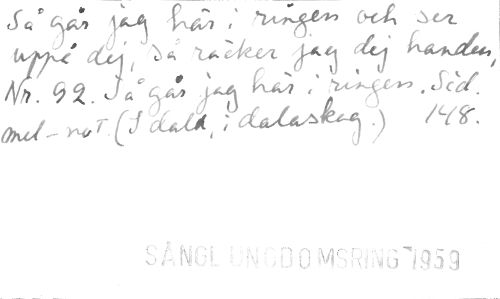 Så går jag här i ringen och ser
uppå dej, så räcker jag dej handen,
Nr. 92. Så går jag här i ringen. Sid.
mel-not. (I dala, i dalaskog.) 148.
SÅNGL UNGDOMSRING 1959